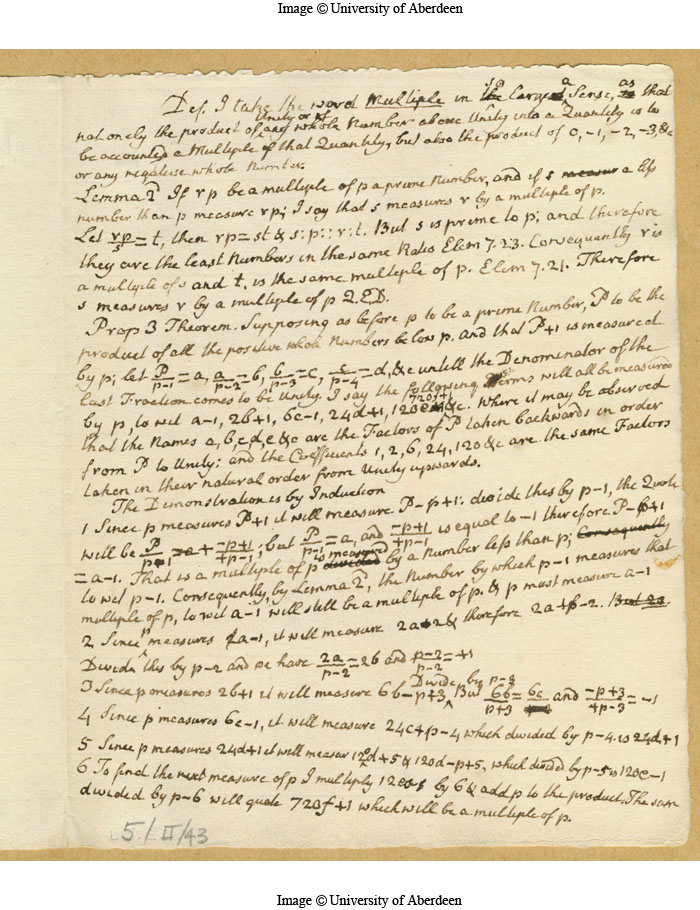 Image © University of Aberdeen
Def. I take the word Multiple in its largest Sense, as that
not onely the product of Unity or of any whole Number above Unity into a Quantity is to
be accounted a Multiple of that Quantity, but also the product of 0, -1, -2, -3, &c
or any negative whole Number.
Lemma 2d If rp be a multiple of p a prime Number, and if s a less
number than p measure rp; I say that s measures r by a multiple of p.
Let rp/s = t, then rp = st & s : p :: r : t. But s is prime to p; and therefore
they are the least Numbers in the same Ratio Elem 7.23. Consequently r is
a multiple of s and t, is the same multiple of p. Elem 7.21. Therefore
s measures r by a multiple of p Q.E.D.
Prop 3 Theorem. Supposing as before p to be a prime Number, P to be the
product of all the positive whole Numbers below p. and that P+1 is measured
by p; let P/p-1 = a, a/p-2 = b, b/p-3 = c, c/p-4 = d, &c untill the Denominator of the
last Fraction comes to be Unity. I say the following terms will all be measured
by p, to wit a-1, 2b+1, 6c-1, 24d+1, 120e-1 720f+1 &c. Where it may be observed
that the Names a, b, c, d, e &c are the Factors of P taken backwards in order
from P to Unity: and the Coefficients 1, 2, 6, 24, 120 &c are the same Factors
taken in their natural order from Unity upwards.
The Demonstration is by Induction
1 Since p measures P+1 it will measure P-p+1: divide this by p-1, the Quote
will be P/p-1 + -p+1/+p-1; but P/p-1 = a, and -p+1/+p-1 is equal to -1 therefore P-p+1
= a-1. That is a multiple of p is measured by a number less than p; Consequently
to wit p-1. Consequently, by Lemma 2d, the Number by which p-1 measures that
multiple of p, to wit a-1 will still be a multiple of p. & p must measure a-1
2 Since p measures a-1, it will measure 2a-2 & therefore 2a+p-2. But 2a
Divide this by p-2 and we have 2a/p-2 = 2b and p-2/p-2 = +1
3 Since p measures 2b+1 it will measure 6b-p+3 Divide by p-3 But 6b/p+3 = 6c and -p+3/+p-3 = -1
4 Since p measures 6c-1, it will measure 24c+p-4 which divided by p-4 is 24d+1
5 Since p measures 24d+1 it will measur 120d+5 & 120d-p+5, which divided by p-5 is 120e-1
6 To find the next measure of p I multiply 120e-1 by 6 & add p to the product. The sum
divided by p-6 will quote 720f+1 which will be a multiple of p.
5/II/43
Image © University of Aberdeen